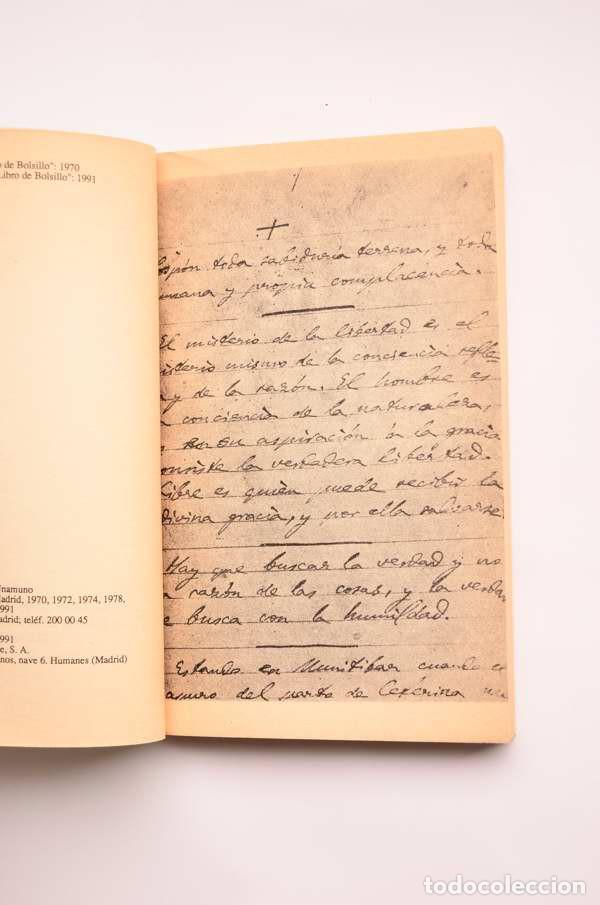 o de Bolsillo": 1970
Libro de Bolsillo": 1991
Unamuno
Madrid, 1970, 1972, 1974, 1978,
991
adrid; teléf. 200 00 45
991
e, S. A.
nos, nave 6. Humanes (Madrid)
toda sabiduría terrena, y toda
umana y propia complacencia.
El misterio de la libertad es el
isterio mismo de la conciencia refle-
a y de la razón. El hombre es
a conciencia de la naturaleza,
y en su aspiración á la gracia
onsiste la verdadera libertad.
Libre es quien puede recibir la
divina gracia, y por ella salvarse.
Hay que buscar la verdad y no
a razón de las cosas, y la verdad
e busca con la humildad.
Estando en Munitibar cuando el
apuro del parto de Ceferina
todocoleccion
todocoleccion.net